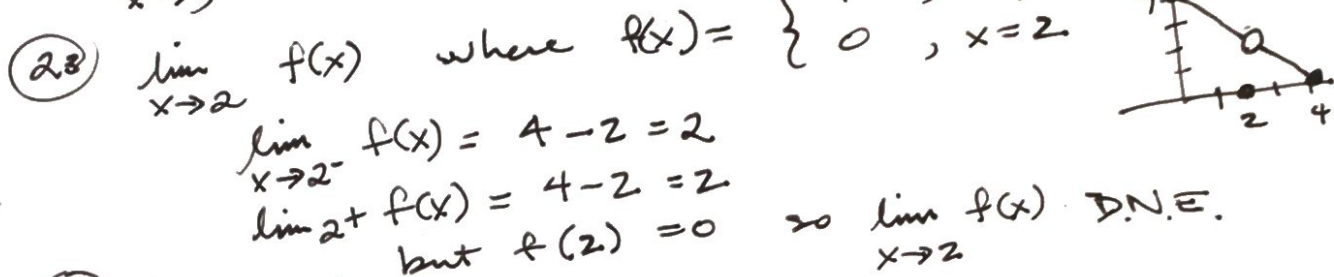 (23) lim x→2 f(x) where f(x) = { 0 , x = 2
2 4
lim x→2⁻ f(x) = 4 - 2 = 2
lim 2⁺ f(x) = 4 - 2 = 2
but f(2) = 0 so lim x→2 f(x) D.N.E.